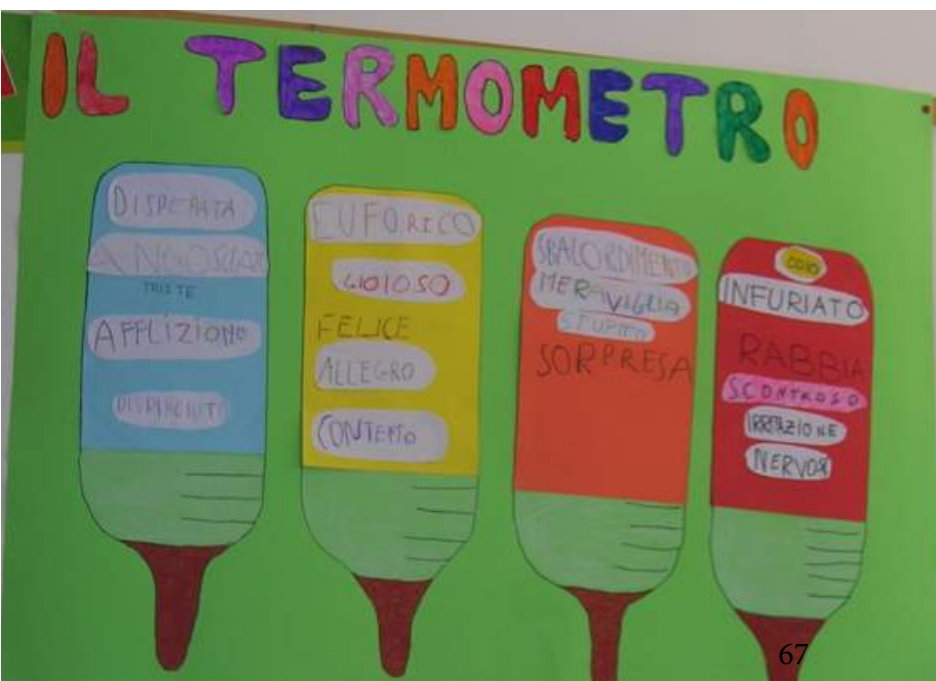 IL TERMOMETRO
DISPERATA
ANGOSCIA
TRISTE
AFFLIZIONE
DISPIACIUTO
EUFORICO
GIOIOSO
FELICE
ALLEGRO
CONTENTO
SBALORDIMENTO
MERAVIGLIA
STUPITO
SORPRESA
ODIO
INFURIATO
RABBIA
SCONTROSO
IRRITAZIONE
67